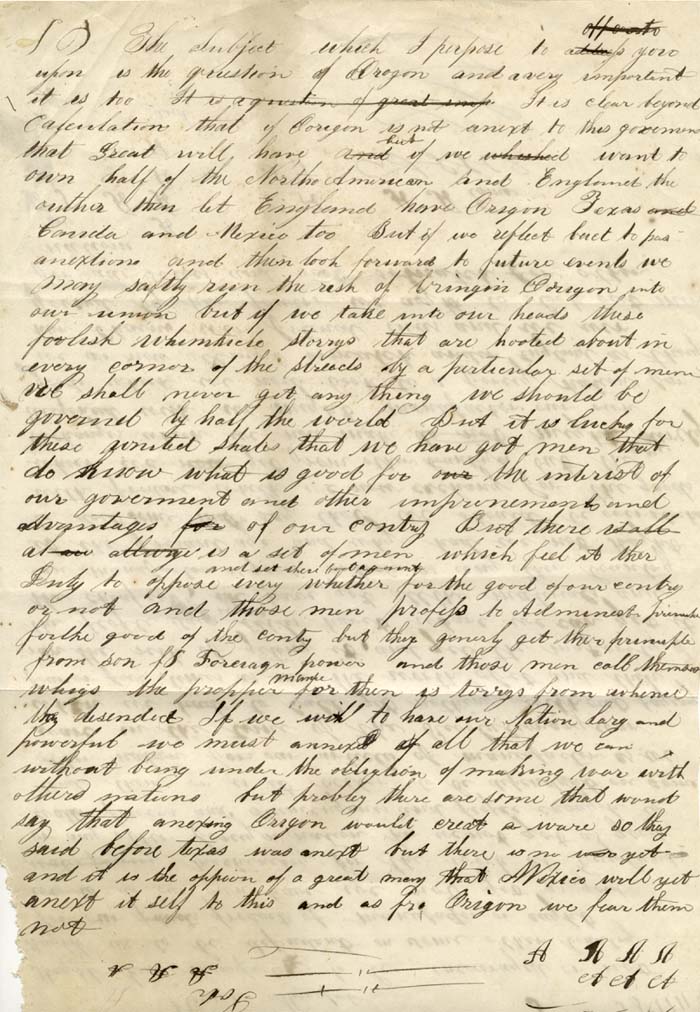 The Subject which I perpose to address you
upon is the question of Oregon and avery important
it is too It is a question of great It is clear beyond
Calculation that if Oorigon is not anext to this goverment
that Great will have and but if we wished want to
own half of the North American and England the
outher then let England have Origon Texas and
Canida and Mexico too But if we reflect back to pas
anextions and then look forward to future events we
may saftly run the resk of bringin Oorigon into
our union but if we take into our heads these
foolish whimhicle storrys that are hooted about in
every corner of the streads by a perticular set of men
we shall never got any thing we should be
governd by half the world But it is lucky for
these younited States that we have got men that
do know what is good foo our the interist of
our goverment and other improvements and
advantages for of our contry But there is all
at is a set of men which feel it ther
Duty to oppose every whether for the good of our contry
or not and those men profess to Adminest
forthe good of the conty but they generly get ther principle
from son Foreiagn power and those men call themselves
whigs the propper name for them is torrys from whence
thy desended If we wish to have our Nation larg and
powerful we must annex of all that we can
without being under the obligtion of making war with
others nations but probley there are some that woud
say that anexing Origon would creat a ware so they
said before texas was anext but there is no yet
and it is the oppion of a great many that Mexico will yet
anext it self to this and as for Origon we fear them
not
A A A A
A A A